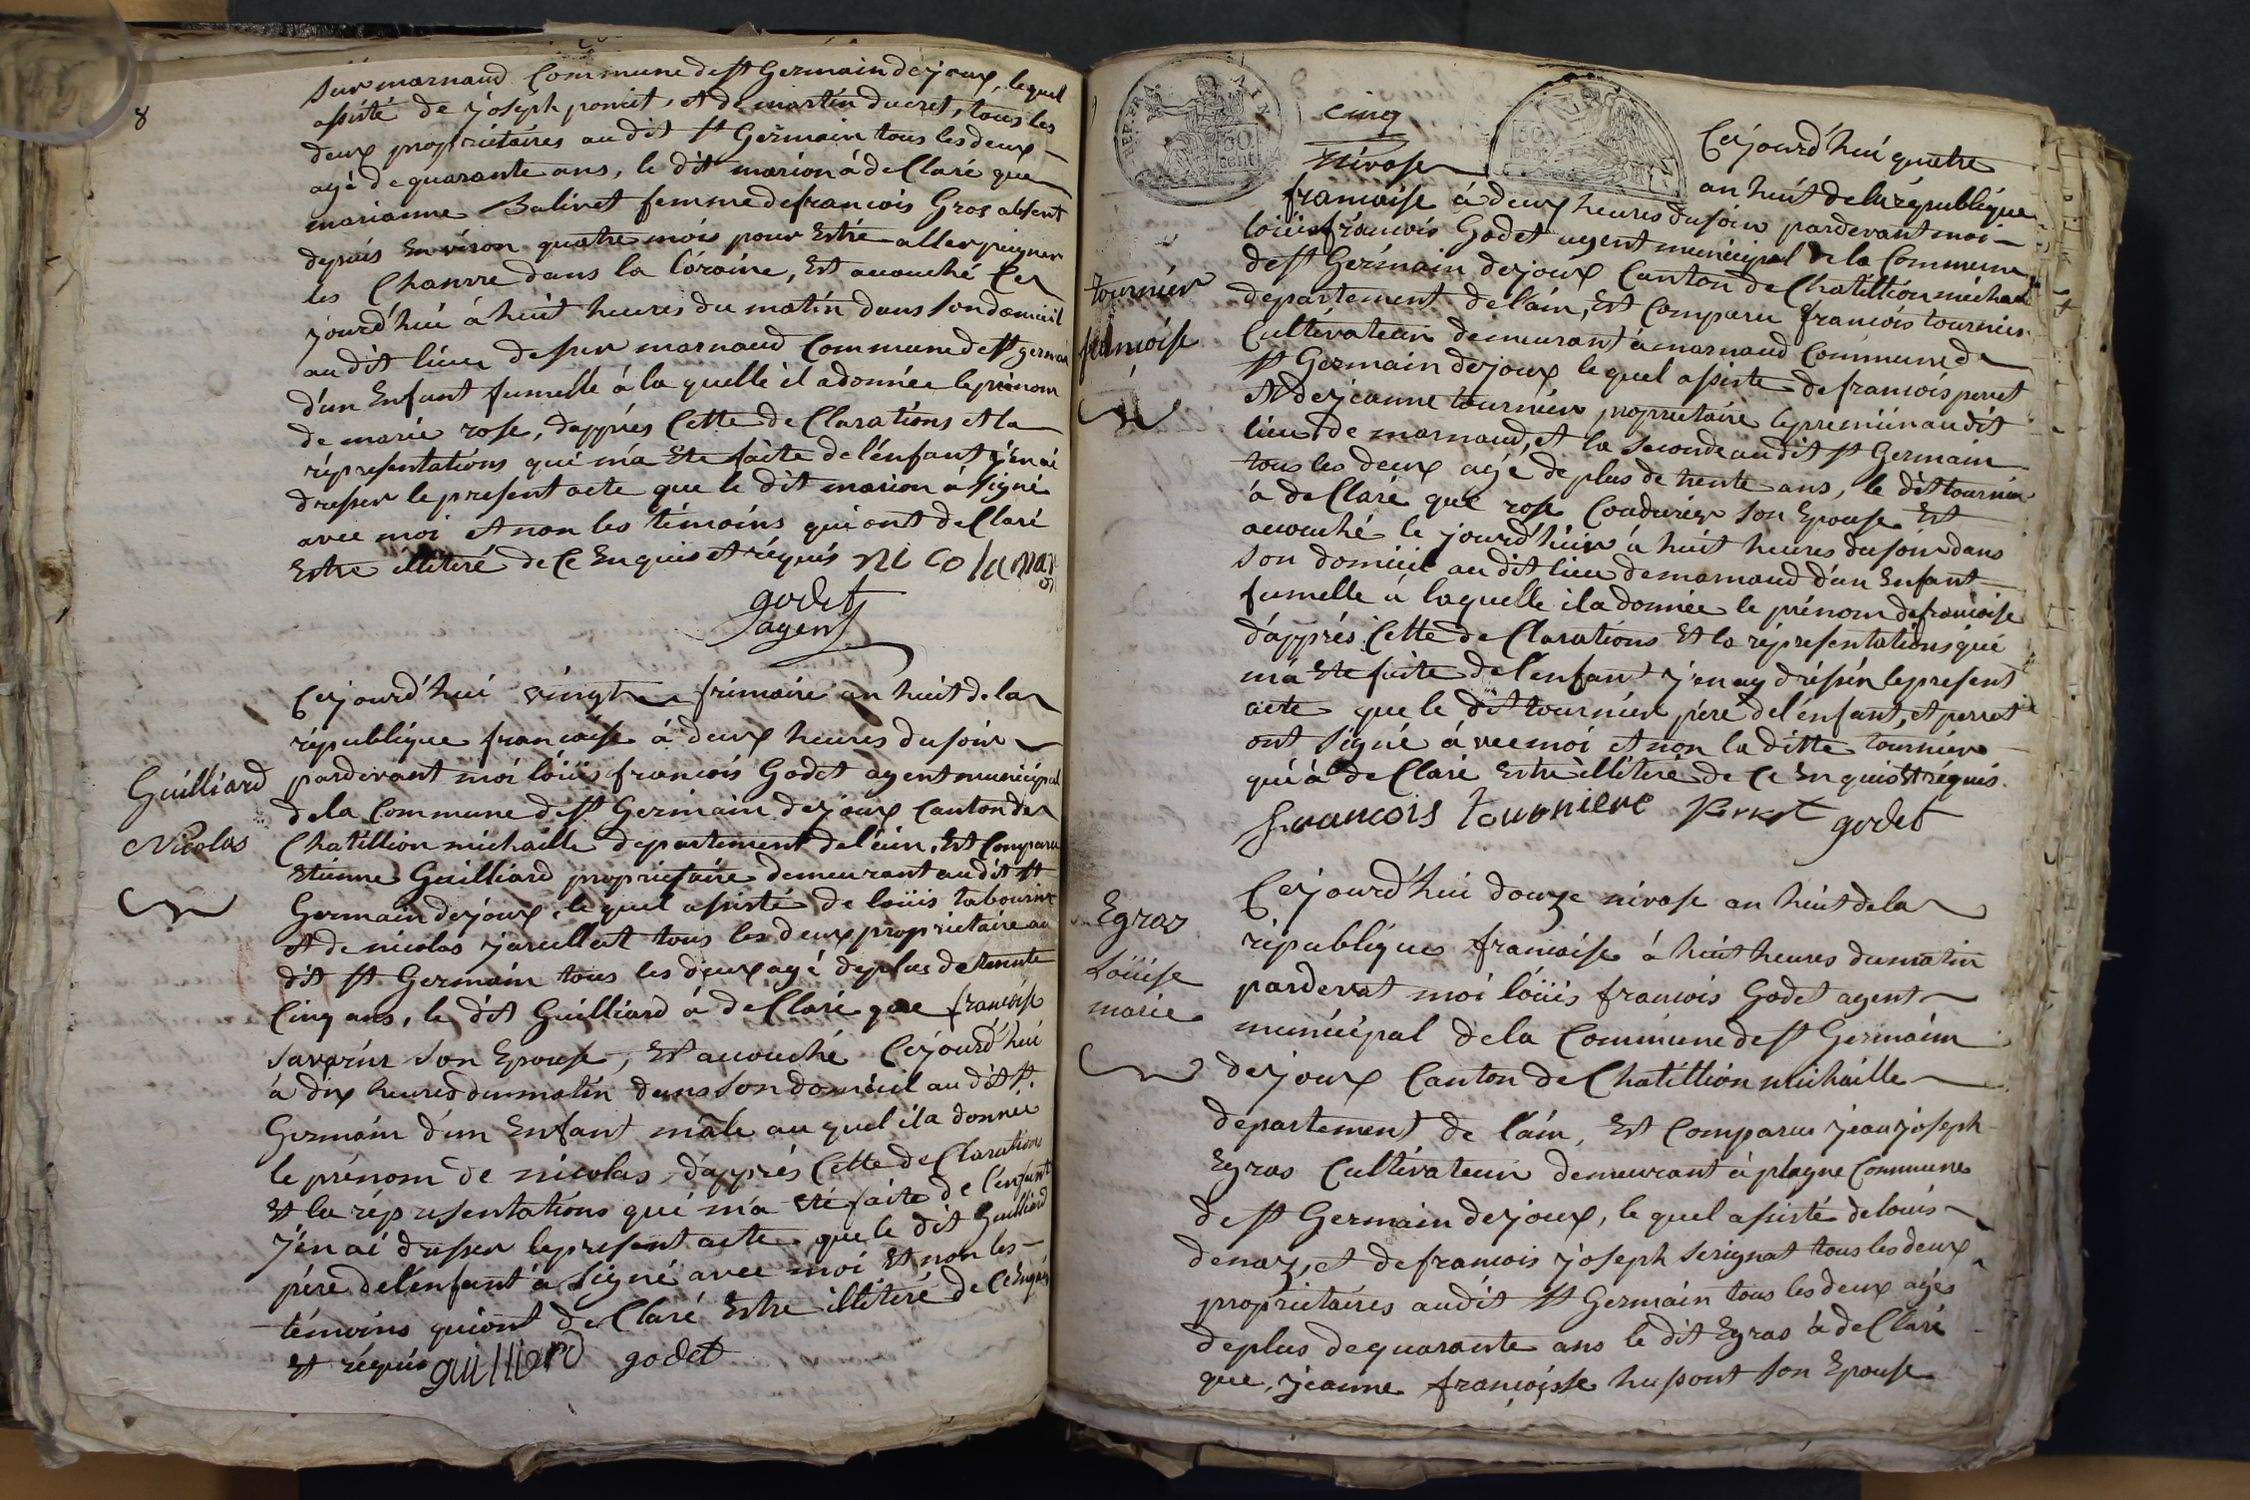 8
sur marnaud Commune de st Germain dejoux, lequel
assisté de joseph poncet, et de martin ducret, tous les
deux propriétaires au dit st Germain tous les deux
agé de quarante ans, le dit marion à deClaré que
marianne Balivet femme de francois Gros absent
depuis Environ quatre mois pour Estre aller peigner
les Chanvre dans la Loraine, Est acouché Ce
jourd'hui à huit heures du matin dans son domicil
au dit lieu de sur marnaud Commune de st germain
d'un Enfant fumelle à la quelle il a donnée le prénom
de marie rose, dapprés Cette deClarations et la
réprésentations qui m'a Ete faite de l'énfant j'en ai
dresser le present acte que le dit marion à signé
avec moi et non les témoins qui ont deClaré
Estre illiteré de Ce Enquis et réquis nicola mar
godet
agent
Guilliard
Nicolas
Cejourd'hui vingt frimaire an huit de la
république francaise à deux heures du soir
pardevant moi loüis francois Godet agent municipal
de la Commune de st Germain dejoux Canton de
Chatillion michaille departement de l'ain, Est Comparu
Etienne Guilliard propriétaire demeurant au dit st
Germain dejoux, le quel assisté de loüis tabourin
et de nicolas jarullect tous les deux propriétaire au
dit st Germain tous les deux agé deplus de trente
Cinq ans, le dit Guilliard à deClaré que francoise
savarin son Epouse, Est acouché Cejourd'hui
à dix heures du matin dans son domicil au dit st
Germain d'un Enfant mâle au quel il a donnée
le prénom de nicolas, dapprés Cette deClaration
Et la réprésentations qui m'a été faite de l'énfant
j'en ai dresser le present acte que le dit Guilliard
pére de l'énfant à signé avec moi Et non les
témoins qui ont deClaré Estre illiteré de Ce Enquis
et réquis guilliard godet
cinq
Cejourd'hui quatre
nivose an huit de la république
francaise à deux heures du soir pardevant moi
loüis francois Godet agent municipal de la Commune
de st Germain dejoux Canton de Chatillion michail
departement de l'ain, Est Comparu francois tournier
Cultivateur demeurant à marnaud Commune de
st Germain dejoux lequel assiste de francois perret
et de jeanne tournier propriétaire le premier audit
lieu de marnaud, et la seconde au dit st Germain
tous les deux agé de plus de trente ans, le dit tournier
à deClaré que rose Coudurier son Epouse Est
acouché le jourd'hui à huit heures du soir dans
son domicil au dit lieu de marnaud d'un Enfant
fumelle à laquelle il a donnée le prénom de francoise
d'apprés Cette deClarations Et la réprésentations qui
m'a Ete faite de l'énfant j'en ay drésser le present
acte que le dit tournier pére de l'énfant, et perret
ont signé avec moi et non la ditte tournier
qui à deClaré Estre illiteré de Ce Enquis Et réquis.
francois tourniere Perret godet
tournier
francoise
Egras
Loüise
marie
Cejourd'hui douze nivose an huit de la
république francaise à huit heures du matin
pardevat moi loüis francois Godet agent
municipal de la Commune de st Germain
dejoux Canton de Chatillion michaille
departement de l'ain, Est Comparu jean joseph
Egras Cultivateur demeurant à plagne Commune
de st Germain dejoux, le quel assisté de louis
denaz, et de francois joseph serignat tous les deux
propriétaires audit st Germain tous les deux agés
deplus de quarante ans le dit Egras à deClaré
que, jeanne françoisse hussont son Epouse